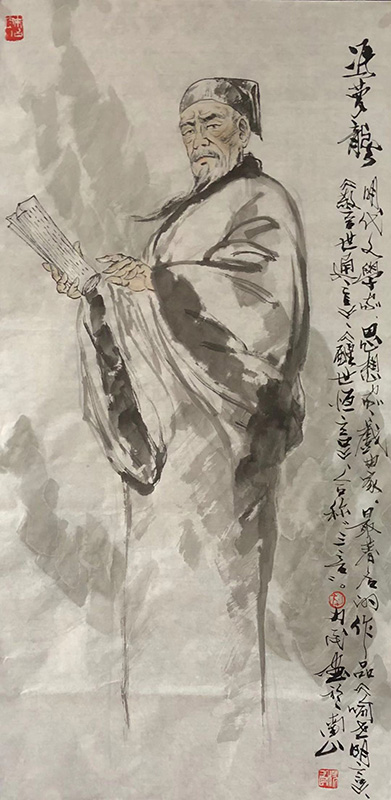 冯梦龍
明代文學家、思想家、戲曲家。最著名的作品《喻世明言》、
《警世通言》、《醒世恒言》、合称"三言"。
民画於南山